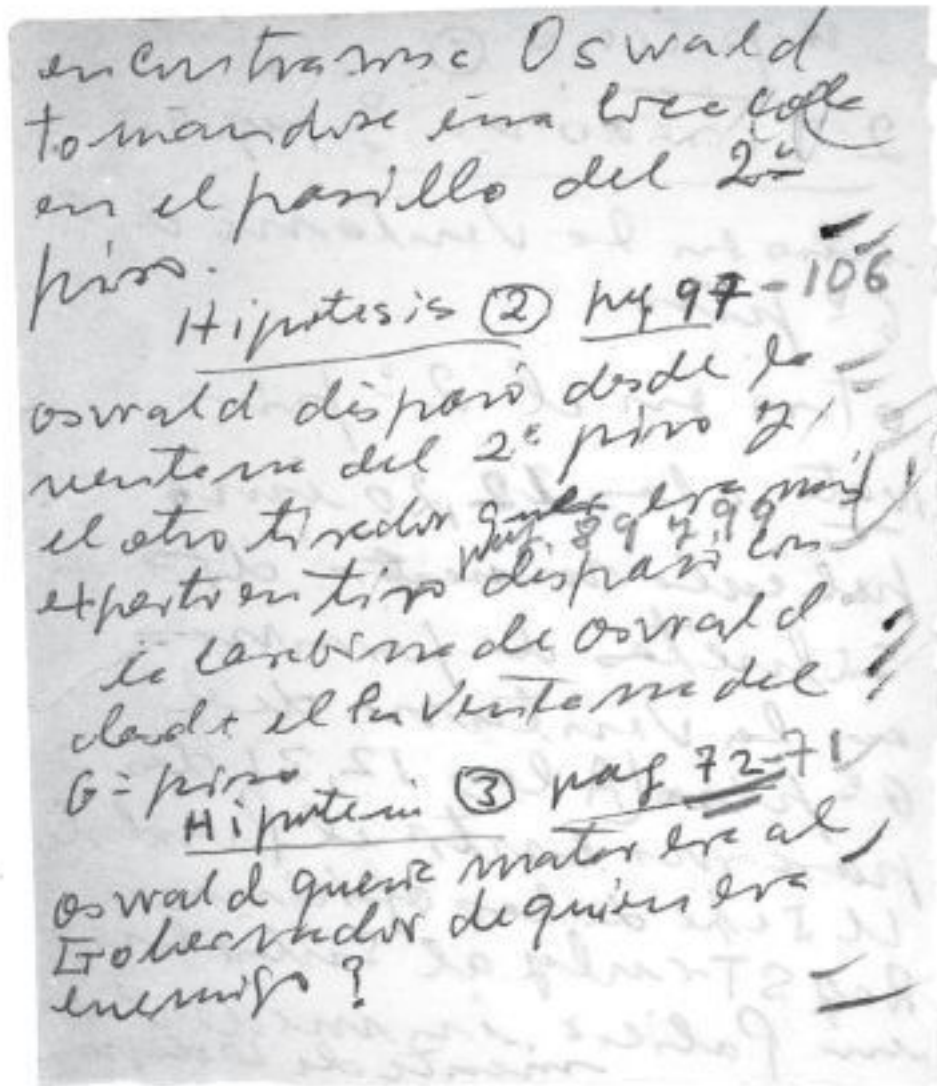 encontrarse Oswald
tomándose una coca cola
en el pasillo del 2º
piso.
Hipotesis ② pag 97-106
oswald disparó desde la
ventana del 2º piso y
el otro tirador que era más
pag. 89 y 99
experto en tiro disparó con
la carabina de oswald
desde el la ventana del
6º piso
Hipotesis ③ pag 72-71
oswald queria matar era al
Gobernador de quien era
enemigo?